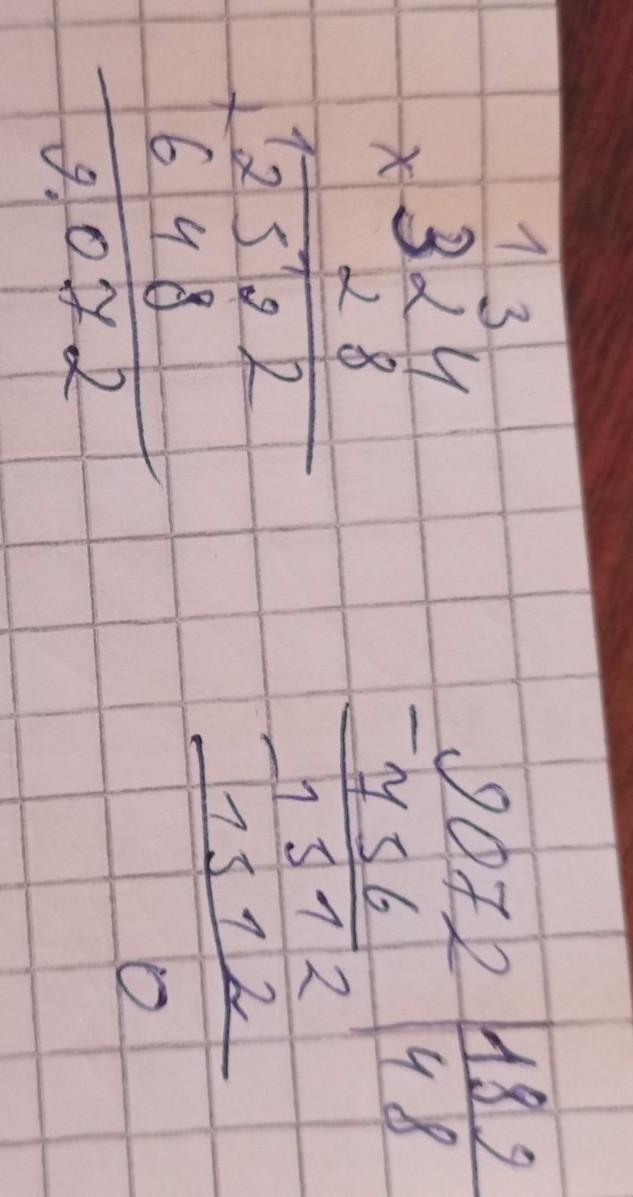 1 3
× 324
28
1 1
+ 2592
648
9.072
9072 | 189
- 756 48
1512
- 1512
0